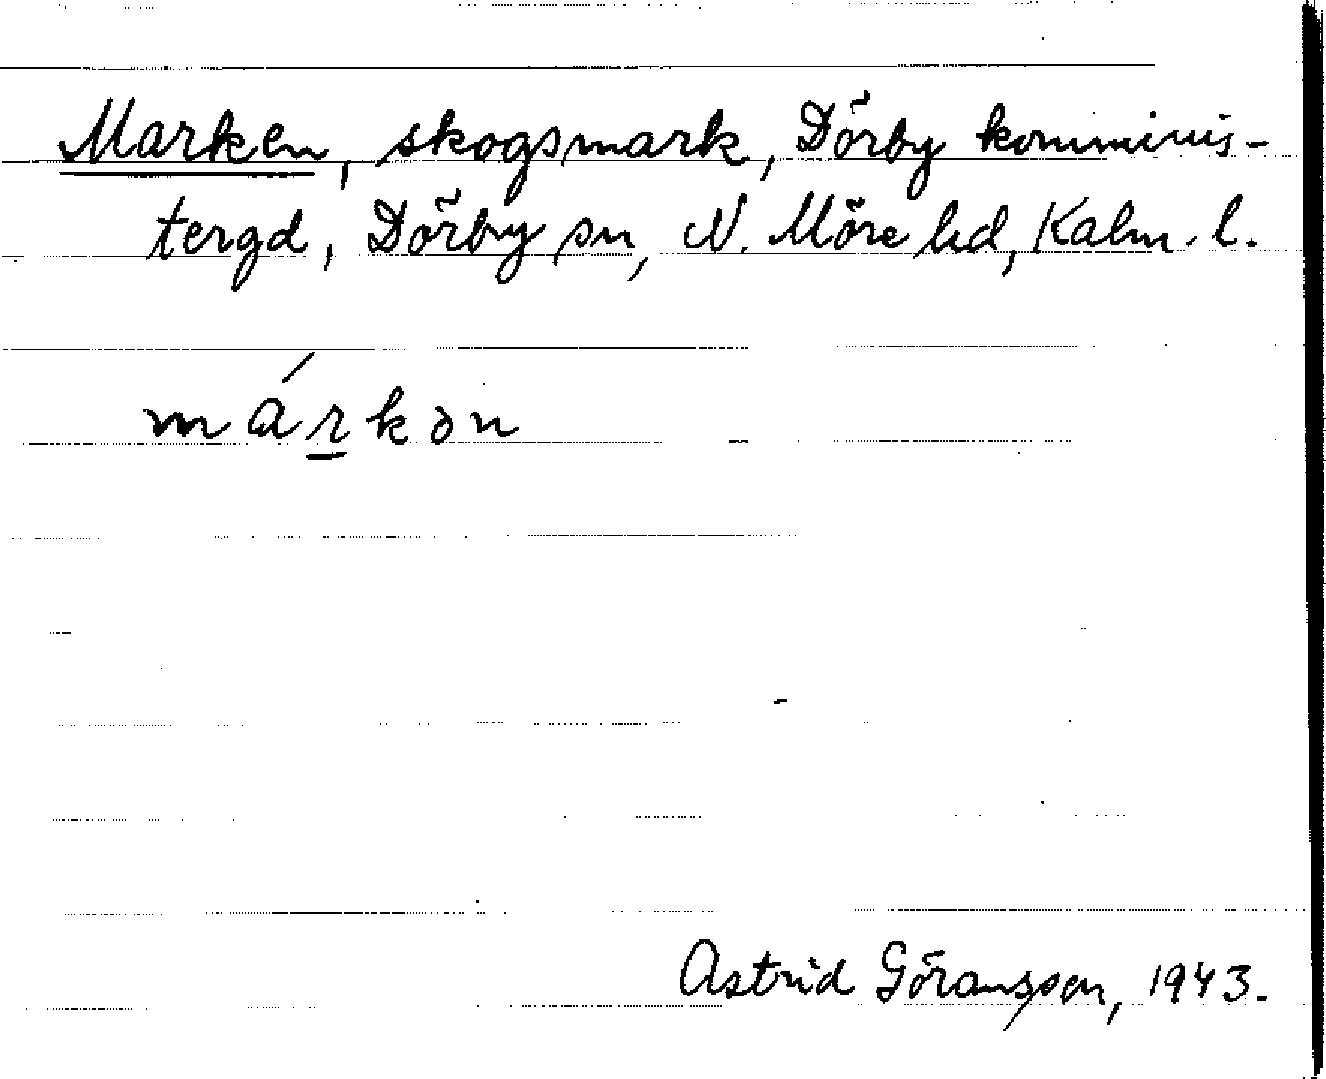 Marken, skogsmark, Dörby kominis-
tergd, Dörby sn, N. Möre hd, Kalm. l.
márkən
Astrid Göransson, 1943.